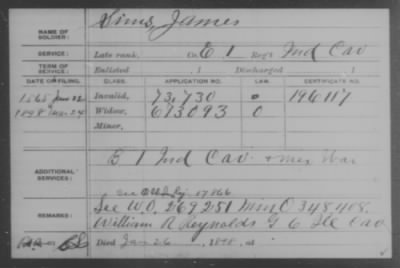 NAME OF SOLDIER: Sims, James
SERVICE: Late rank, Co. E 1 Reg't Ind Cav
TERM OF SERVICE: Enlisted 1 Discharged 1
DATE OF FILING. CLASS. APPLICATION NO. LAW. CERTIFICATE NO.
1865 June 22 Invalid, 73,730 0 196117
1898 Mar 24 Widow, 673093 0
Minor,
ADDITIONAL SERVICES: E 1 Ind Cav. + Mex War
see Old
REMARKS: See W.O. 269251 Min C 348408.
William R Reynolds G 6 Ill Cav
Died Jan 26, 1898, at